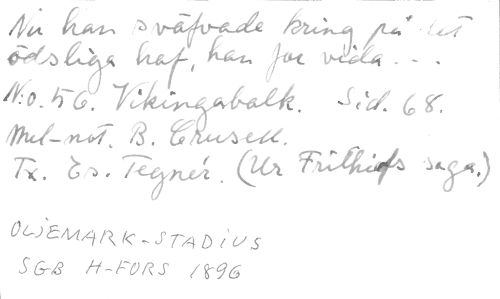 Nu han sväfvade kring på det
ödsliga haf, han for vida . . .
N:o. 56. Vikingabalk. Sid. 68.
Mel-not. B. Crusell.
Tx. Es. Tegnér. (Ur Frithiofs saga.)
OLJEMARK-STADIUS
SGB H-FORS 1896